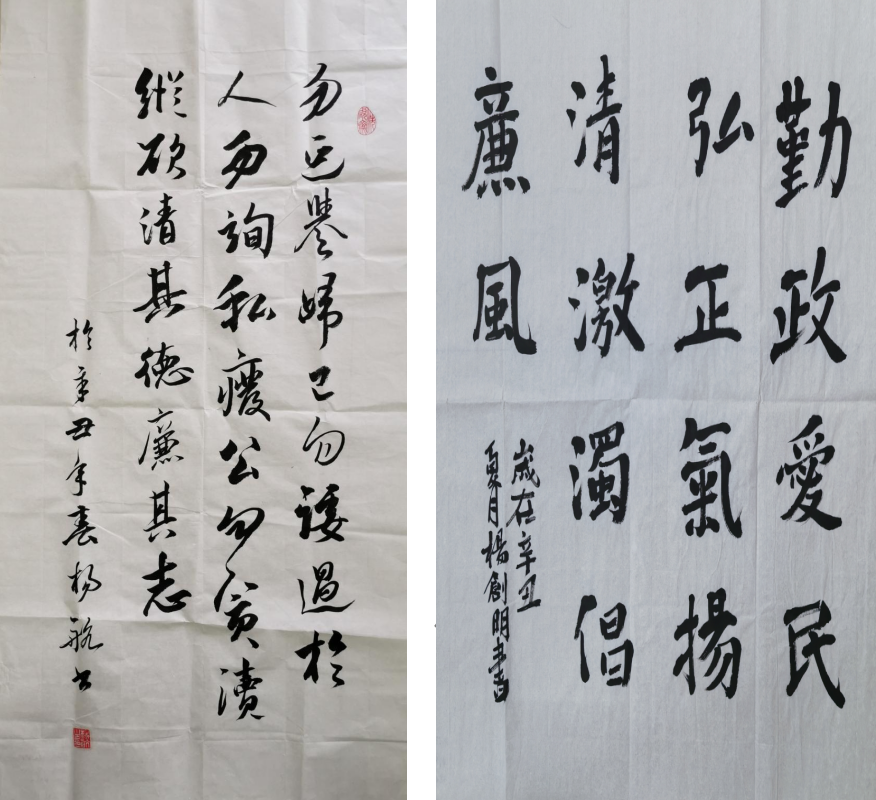 勿譽歸己勿諉過於
人勿詢私癈公勿貪瀆
縱欲清其德廉其志
於辛丑年春楊航书
勤政愛民
弘正氣揚
清激濁倡
廉風
歲在辛丑
夏月楊創明書